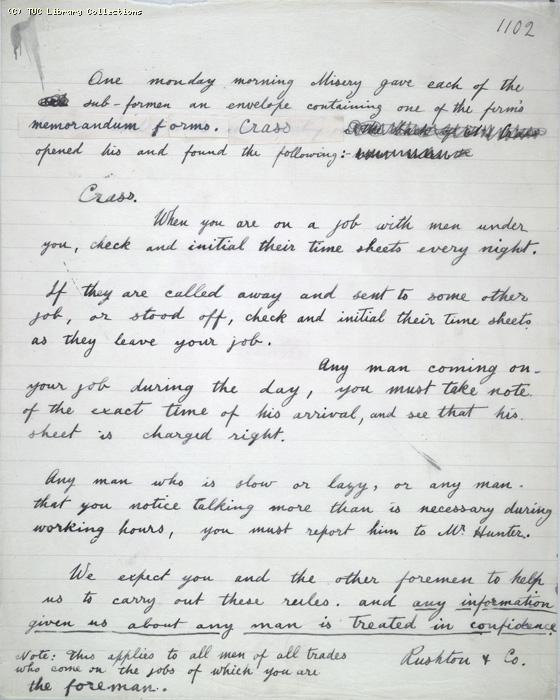 (C) TUC Library Collections
1102
One monday morning Misery gave each of the
sub-foremen an envelope containing one of the firm's
memorandum forms. Crass
opened his and found the following:
Crass.
When you are on a job with men under
you, check and initial their time sheets every night.
If they are called away and sent to some other
job, or stood off, check and initial their time sheets
as they leave your job.
Any man coming on
your job during the day, you must take note
of the exact time of his arrival, and see that his
sheet is charged right.
Any man who is slow or lazy, or any man
that you notice talking more than is necessary during
working hours, you must report him to Mr Hunter.
We expect you and the other foremen to help
us to carry out these rules. and any information
given us about any man is treated in confidence
Rushton & Co.
Note: This applies to all men of all trades
who come on the jobs of which you are
the foreman.